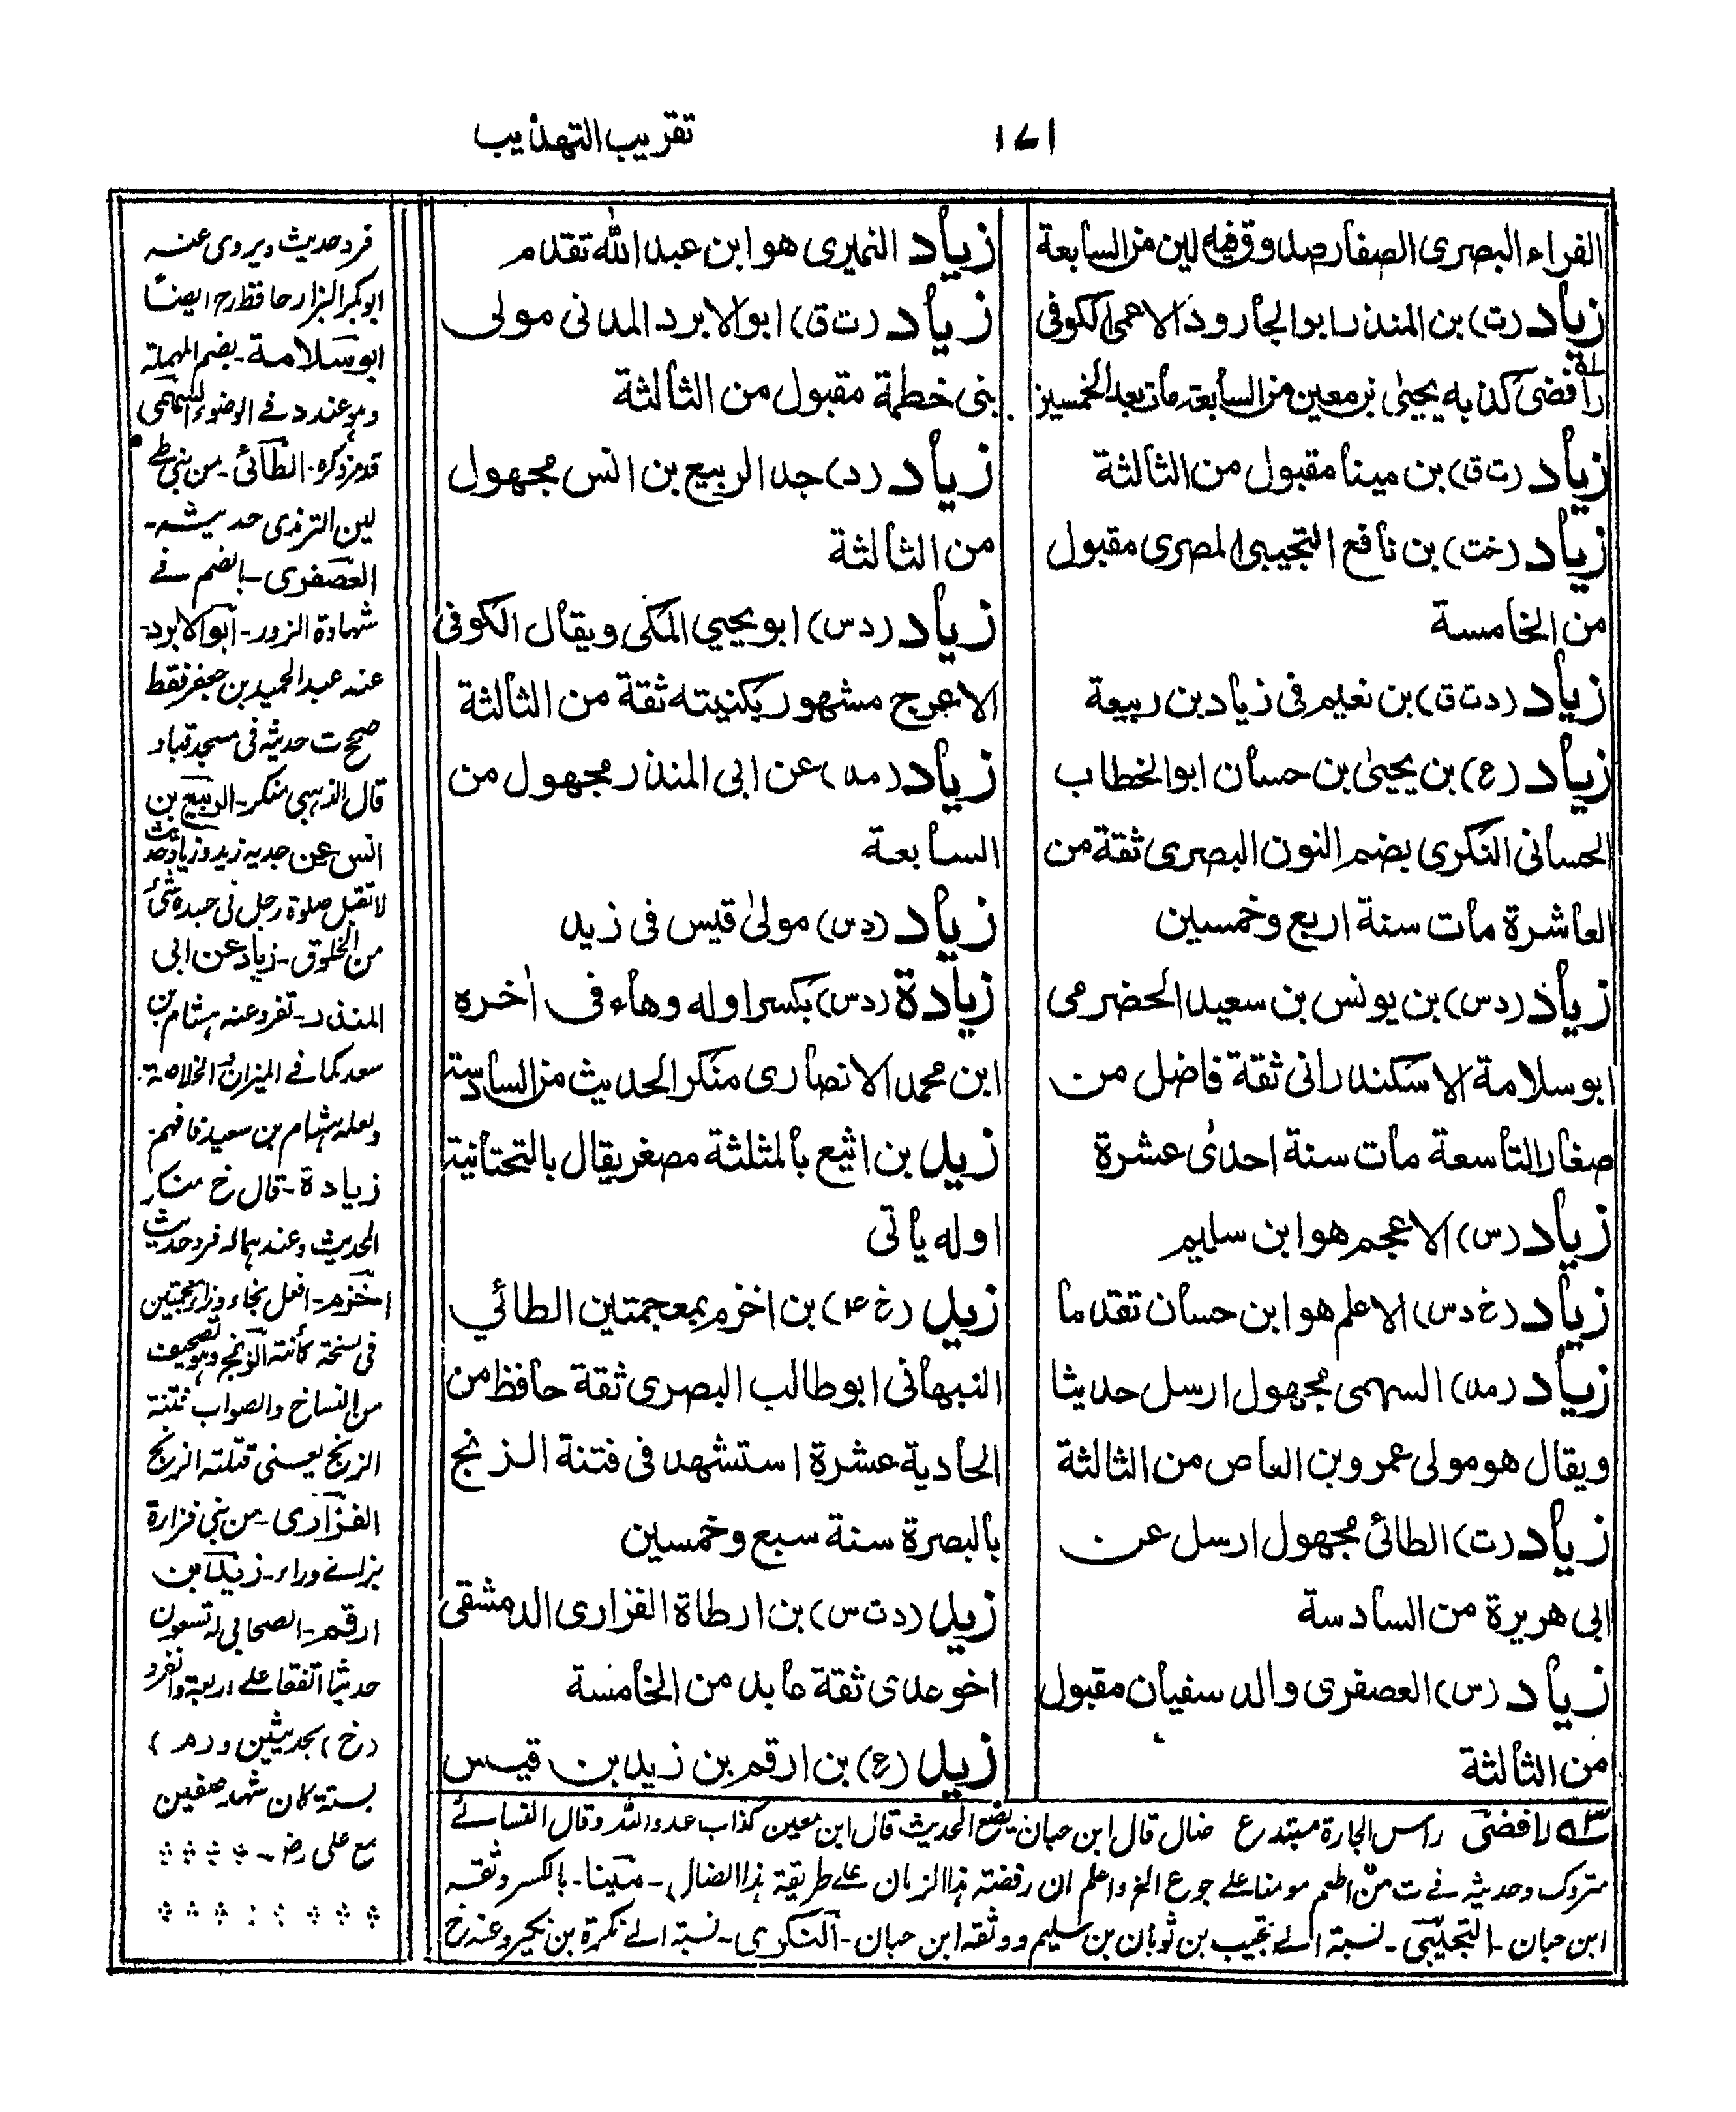 ١٧١
تقريب التهذيب
الفراء البصرى الصفار صدوق فيه لين من السابعة
زياد (ت) بن المنذر ابو الجارود الاعمى الكوفى
رافضى كذبه يحيىٰ بن معين من السابعة مات بعد الخمسين
زياد (ت ق) بن مينا مقبول من الثالثة
زياد (خت) بن نافع التجيبى المصرى مقبول
من الخامسة
زياد (دت ق) بن نعيم فى زياد بن ربيعة
زياد (ع) بن يحيىٰ بن حسان ابو الخطاب
الحسانى النكرى بضم النون البصرى ثقة من
العاشرة مات سنة اربع وخمسين
زياد (دس) بن يونس بن سعيد الحضرمى
ابو سلامة الاسكندرانى ثقة فاضل من
صغار التاسعة مات سنة احدىٰ عشرة
زياد (س) الاعجم هو ابن سليم
زياد (خ دس) الاعلم هو ابن حسان تقدما
زياد (مد) السهمى مجهول ارسل حديثا
ويقال هو مولى عمرو بن العاص من الثالثة
زياد (ت) الطائى مجهول ارسل عن
ابى هريرة من السادسة
زياد (س) العصفرى والد سفيان مقبول
من الثالثة
زياد النميرى هو ابن عبد الله تقدم
زياد (ت ق) ابو الابرد المدنى مولى
بنى خطمة مقبول من الثالثة
زياد (د) جد الربيع بن انس مجهول
من الثالثة
زياد (دس) ابو يحيي المكى ويقال الكوفى
الاعرج مشهور بكنيته ثقة من الثالثة
زياد (مد) عن ابى المنذر مجهول من
السابعة
زياد (دس) مولىٰ قيس فى زيد
زيادة (دس) بكسر اوله وهاء فى اٰخره
ابن محمد الانصارى منكر الحديث من السادسة
زيد بن اثيع بالمثلثة مصغر يقال بالتحتانية
اوله يأتى
زيد (خ عه) بن اخزم بمعجمتين الطائي
النبهانى ابو طالب البصرى ثقة حافظ من
الحادية عشرة استشهد فى فتنة الزنج
بالبصرة سنة سبع وخمسين
زيد (دت س) بن ارطاة الفزارى الدمشقى
اخو عدى ثقة عابد من الخامسة
زيد (ع) بن ارقم بن زيد بن قيس
فرد حديث ويروى عنه
ابو بكر البزار حافظ رح ايضا
ابو سلامة - بضم المهملة
وهو عند د فى الوضوء السهمى
قد مر ذكره - الطائى - من بنى طے
لين الترمذى حديثه -
العصفرى - بالضم فے
شهادة الزور - ابو الابرد -
عنه عبد الحميد بن جعفر فقط
صحح ت حديثه فى مسجد قباء و
قال الذهبى منكر - الربيع بن
انس عن جديه زيد وزياد حديث
لا تقبل صلوة رجل فى جسده شئ
من الخلوق - زياد عن ابى
المنذر - تفرد عنه هشام بن
سعد كما فے الميزان و الخلاصة -
ولعله هشام بن سعيد فافهم
زيادة - قال خ منكر
الحديث وعندهما له فرد حديث
اخزم - افعل بخاء وزاء معجمتين
فى نسخة كائنة الزنج وهو تصحيف
من النساخ والصواب فتنة
الزنج يعنى قتلته الزنج
الفزارى - من بنى فزارة
بزاے وراء - زيد بن
ارقم - الصحابى له تسعون
حديثا اتفقا على اربعة وانفرد
(خ) بحديثين و (م)
بستة كان شهد صفين
مع على رضـ
٣ رافضى راس الجارة مبتدع ضال قال ابن حبان يضع الحديث قال ابن معين كذاب عدو الله وقال النسائے
متروك وحديثه فے ت من اطعم مومنا على جوع الخ واعلم ان رفضة هذا الزمان على طريقة هذا الضال - مينا - بالكسر وثقه
ابن حبان - التجيبى - نسبة الے تجيب بن ثوبان بن سليم ووثقه ابن حبان - النكرى - نسبة الے نكرة بن لكيز وعنه خ